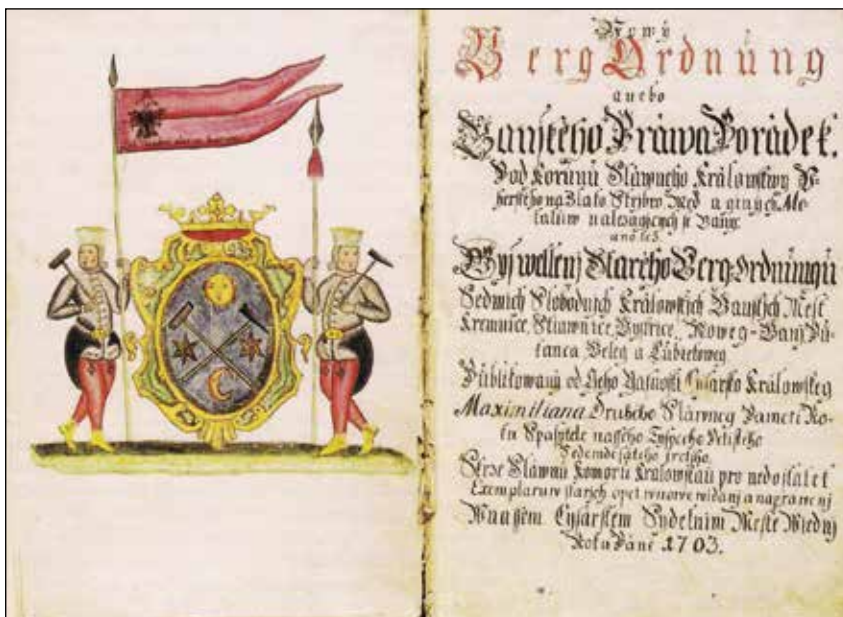 Nowý
Berg Ordnüng
anebo
Banského Práwa Porádek.
Pod Korunú Slawneho Králowstwy V=
herského na Zlato Strÿbro Med a ginÿch Me=
talüw nalezagÿcých se Banÿ
Staréĥo Berg-Ordnüngu
Sedmich Slobodnÿch Králowskÿch Banskÿch Mest
Kremnice, Stiawnice, Bystrice, Noweg-Bani Pü=
kanca Beleg a Lübietoweg
Publikowaný od Geho Cýsarsko Králowskeg
Maximiliana Druhého Slawneg Pameti Ro=
ku Spasytele nasseho Tisýceho Petisteho
Sedemdesáteho tretiho.
Skrze Slawnu Komoru Kralowskau pro nedostatek
Exemplaruw starých opet wnowe widaný a naprawený
W nassem Cysarskem Sýdelnim Meste Wiednÿ
Roku Páně 1703.